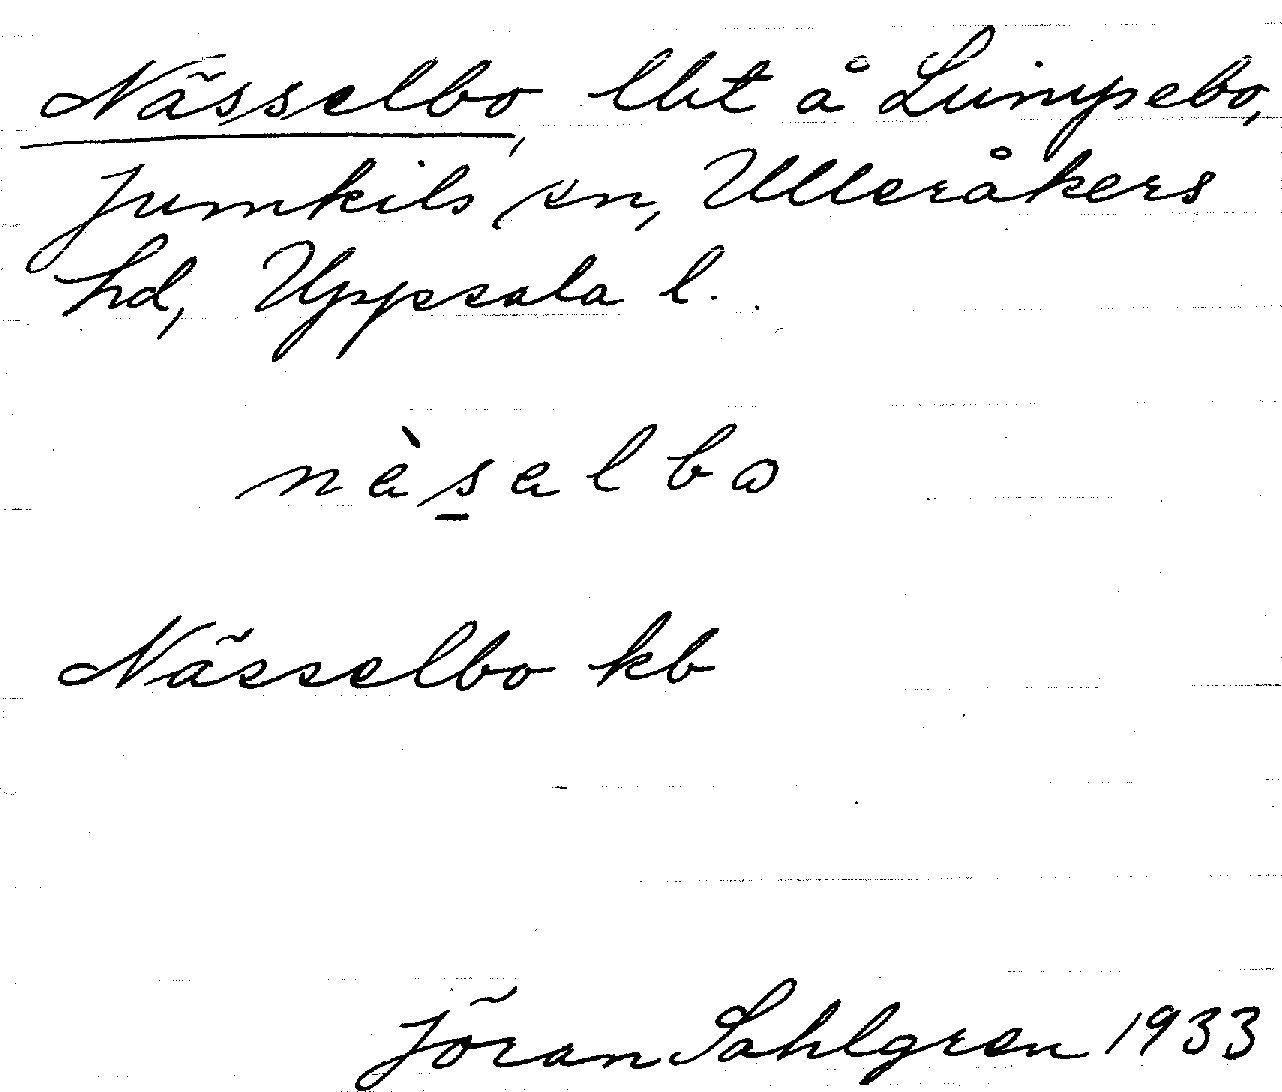 Nässelbo, lht å Lumpebo,
Jumkils sn, Ulleråkers
hd, Uppsala l.
nàs̲albɷ
Nässelbo kb
Jöran Sahlgren 1933